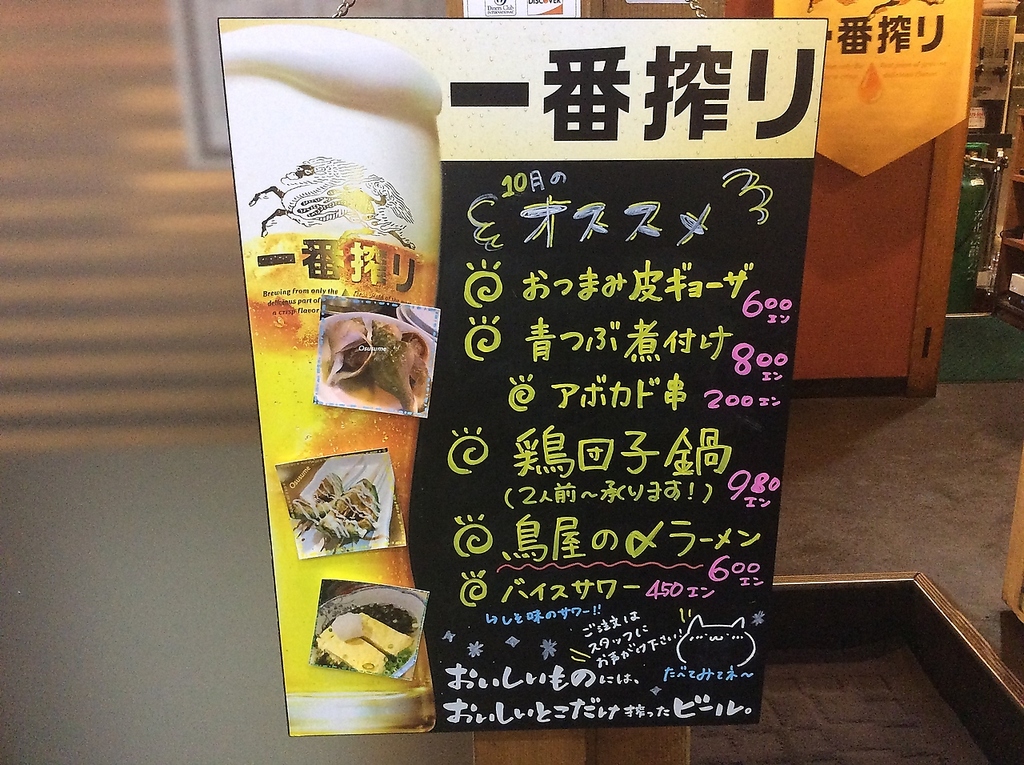 Diners Club
INTERNATIONAL
DISCOVER
一番搾り
一番搾り
一番搾り
Brewing from only the
delicious part of
a crisp flavor
Osusume
Osusume
10月の
オススメ
おつまみ皮ギョーザ
600エン
青つぶ煮付け
800エン
アボカド串 200エン
鶏団子鍋
(2人前〜承ります!) 980エン
鳥屋の〆ラーメン
600エン
バイスサワー 450エン
しそ味のサワー!!
ご注文は
スタッフに
お声がけ下さい!
たべてみてネ〜
おいしいものには、
おいしいとこだけ搾ったビール。